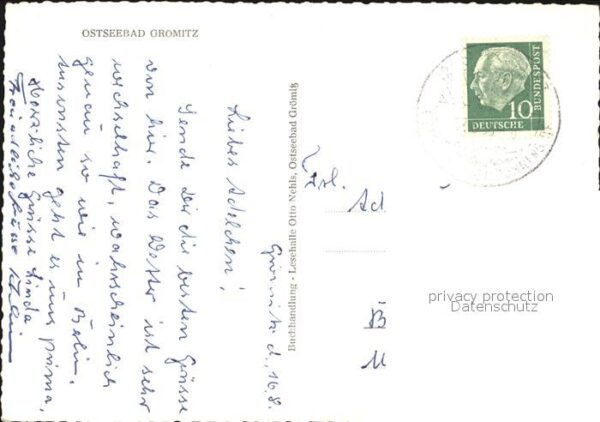 OSTSEEBAD GRÖMITZ
Grömitz d., 16.8.
Liebes Adelchen!
Sende Dir die besten Grüsse
von hier. Das Wetter ist sehr
wechselhaft, wahrscheinlich
genau so wie in Berlin.
Ansonsten geht es uns prima,
Herzliche Grüsse Linda
Buchhandlung - Lesehalle Otto Nehls, Ostseebad Grömitz
Frl.
Ad
B
10
DEUTSCHE
BUNDESPOST
privacy protection
Datenschutz